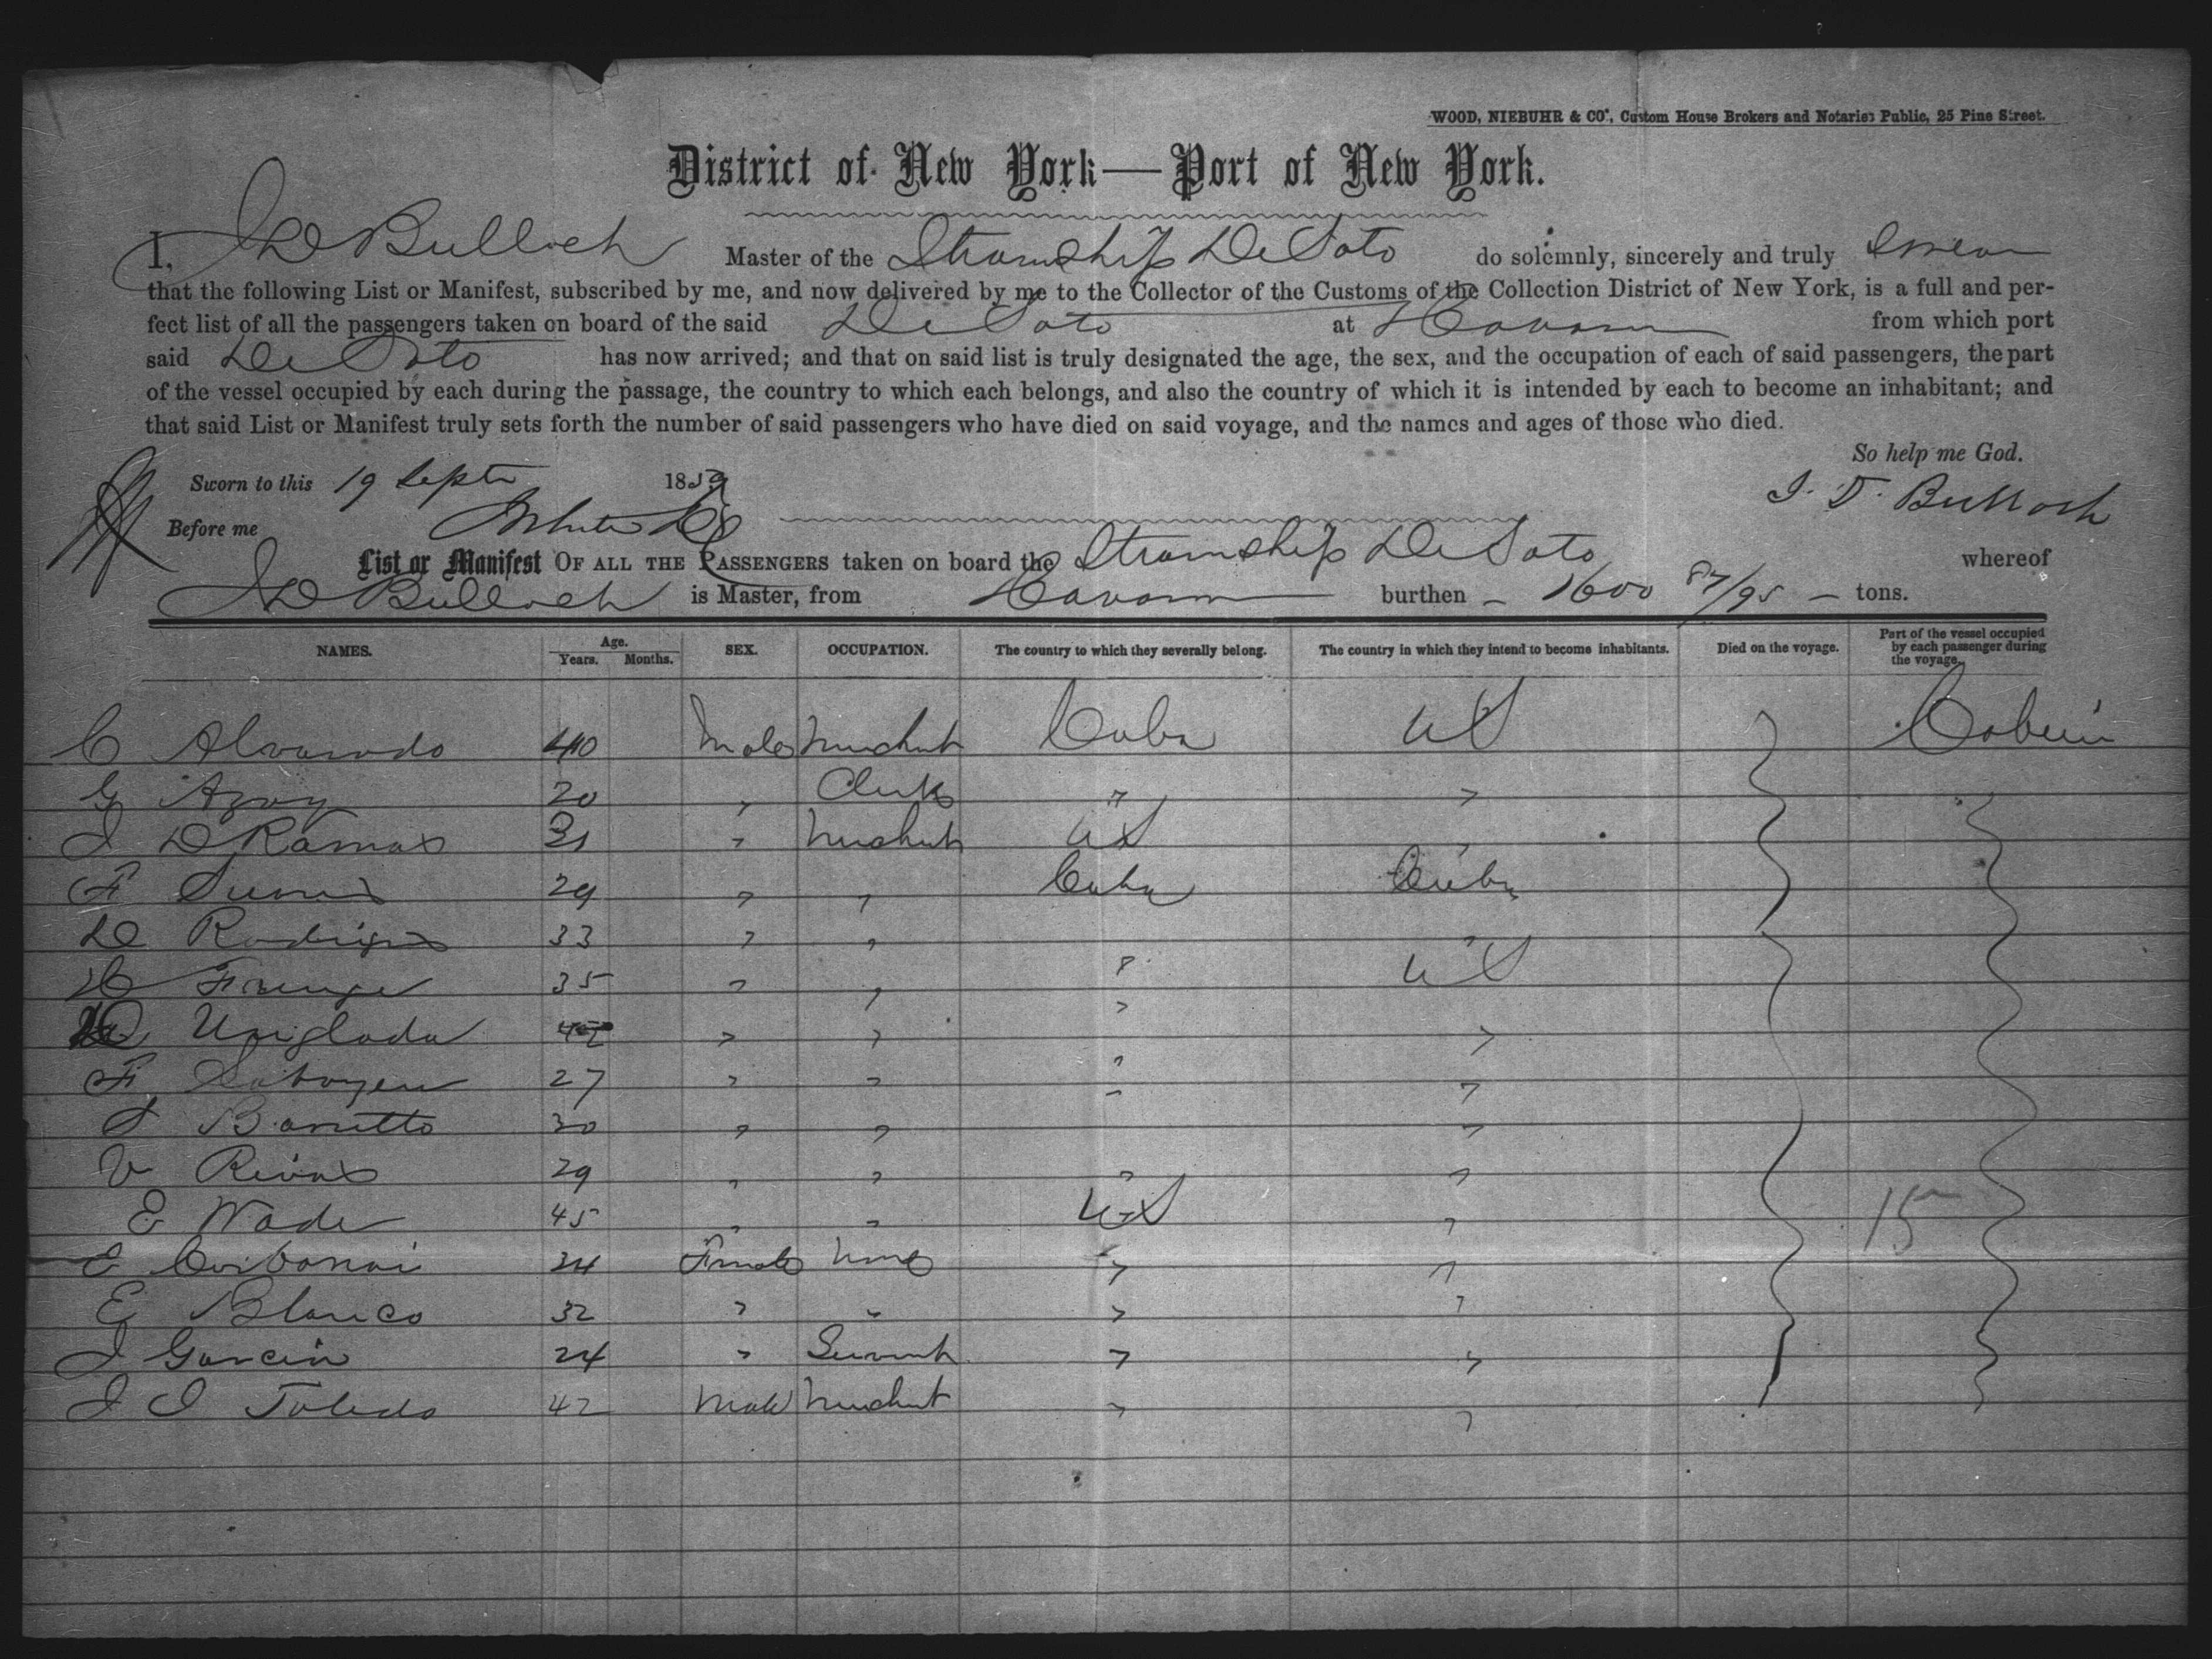 WOOD, NIEBUHR & CO', Custom House Brokers and Notaries Public, 25 Pine Street.
District of New York—Port of New York.
I, J D Bulloch Master of the Steamship De Soto do solemnly, sincerely and truly swear
that the following List or Manifest, subscribed by me, and now delivered by me to the Collector of the Customs of the Collection District of New York, is a full and per-
fect list of all the passengers taken on board of the said De Soto at Havana from which port
said De Soto has now arrived; and that on said list is truly designated the age, the sex, and the occupation of each of said passengers, the part
of the vessel occupied by each during the passage, the country to which each belongs, and also the country of which it is intended by each to become an inhabitant; and
that said List or Manifest truly sets forth the number of said passengers who have died on said voyage, and the names and ages of those who died.
So help me God.
Sworn to this 19 Septr 1859 J. D. Bulloch
Before me
List or Manifest OF ALL THE PASSENGERS taken on board the Steamship De Soto whereof
J D Bulloch is Master, from Havana burthen – 1600 87/95 – tons.
NAMES. Age. Years. Months. SEX. OCCUPATION. The country to which they severally belong. The country in which they intend to become inhabitants. Died on the voyage. Part of the vessel occupied by each passenger during the voyage.
C Alvarado 40 Male Merchant Cuba US Cabin
G Azoy 20 " Clerk " "
J D Ramos 31 " Merchant US "
F 29 " " Cuba Cuba
D Rodrigues 33 " " "
35 " " " US
Uriglada 42 " " " "
F 27 " " " "
Barretto 30 " " " "
V Rivas 29 " " " "
E Wade 45 " " US "
E 24 Female None " "
E Blanco 32 " " " "
J Garcia 24 " Servant " "
J J Toledo 42 Male Merchant " "
15